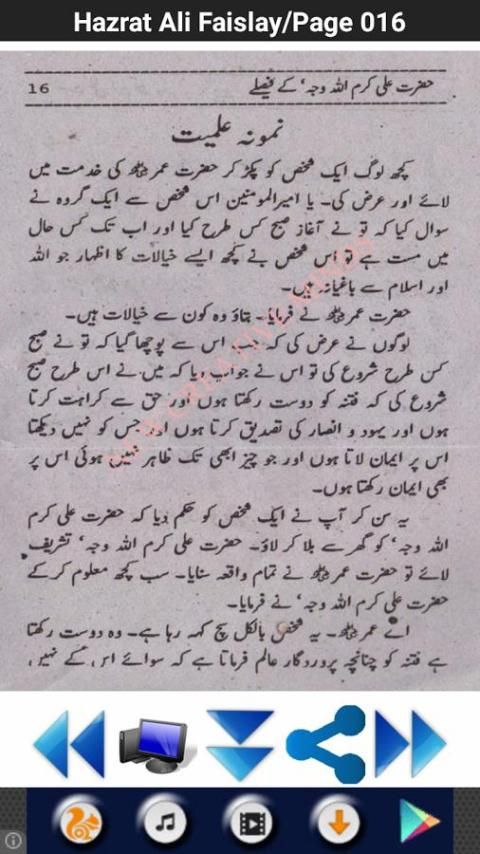 Hazrat Ali Faislay/Page 016
حضرت علی کرم اللہ وجہ' کے فیصلے
16
نمونہ علمیت
کچھ لوگ ایک شخص کو پکڑ کر حضرت عمرؓ کی خدمت میں
لائے اور عرض کی۔ یا امیرالمومنین اس شخص سے ایک گروہ نے
سوال کیا کہ تو نے آغاز صبح کس طرح کیا اور اب تک کس حال
میں مست ہے تو اس شخص نے کچھ ایسے خیالات کا اظہار جو اللہ
اور اسلام سے باغیانہ ہیں۔
حضرت عمرؓ نے فرمایا۔ بتاؤ وہ کون سے خیالات ہیں۔
لوگوں نے عرض کی کہ جب اس سے پوچھا گیا کہ تو نے صبح
کس طرح شروع کی تو اس نے جواب دیا کہ میں نے اس طرح صبح
شروع کی کہ فتنہ کو دوست رکھتا ہوں اور حق سے کراہت کرتا
ہوں اور یہود و انصار کی تصدیق کرتا ہوں اور جس کو نہیں دیکھتا
اس پر ایمان لاتا ہوں اور جو چیز ابھی تک ظاہر نہیں ہوئی اس پر
بھی ایمان رکھتا ہوں۔
یہ سن کر آپ نے ایک شخص کو حکم دیا کہ حضرت علی کرم
اللہ وجہ' کو گھر سے بلا کر لاؤ۔ حضرت علی کرم اللہ وجہ' تشریف
لائے تو حضرت عمرؓ نے تمام واقعہ سنایا۔ سب کچھ معلوم کر کے
حضرت علی کرم اللہ وجہ' نے فرمایا۔
اے عمرؓ۔ یہ شخص بالکل سچ کہہ رہا ہے۔ وہ دوست رکھتا
ہے فتنہ کو چنانچہ پروردگار عالم فرماتا ہے کہ سوائے اس کے نہیں